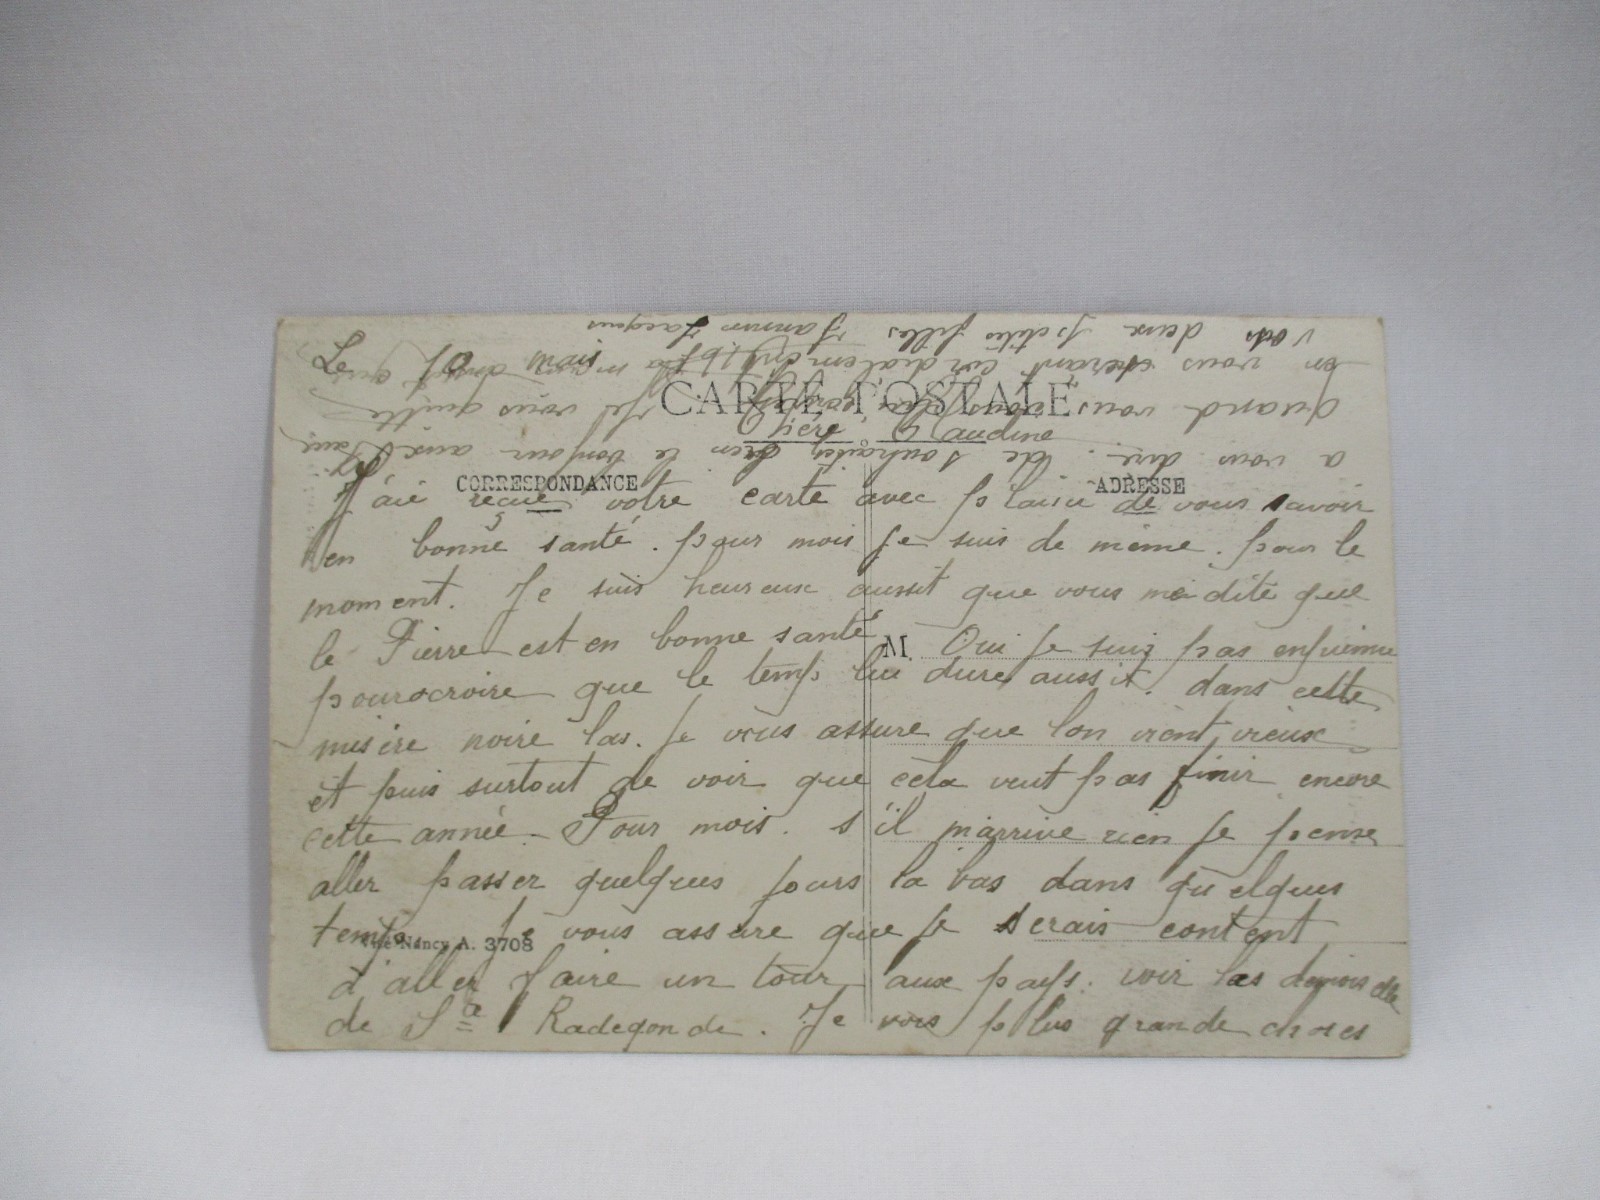 Le 10 mais
CARTE POSTALE
Claudine
CORRESPONDANCE
ADRESSE
J'ai reçue votre carte avec plaisir de vous savoir
en bonne santé. pour mois je suis de même. pour le
moment. Je suis heureux aussit que vous me dite que
le Pierre est en bonne santé
M. Oui je suis pas
pour croire que le temps lui dure aussit. dans cette
misère noire las. Je vous assure que lon vient vieux
et puis surtout de voir que cela veut pas finir encore
cette année. Pour mois. s'il m'arrive rien je pense
aller passer quelques jours la bas dans quelques
temps. Je vous assure que je serais content
Nancy A. 3708
d'aller faire un tour aux pays. voir las
de Ste Radegonde. Je vois plus grande choses
a vous dire. de souhaiter bien le bonjour aux
quand vous Je vous quitte
en vous serrant cordialement la main
vos deux petites filles Jacques